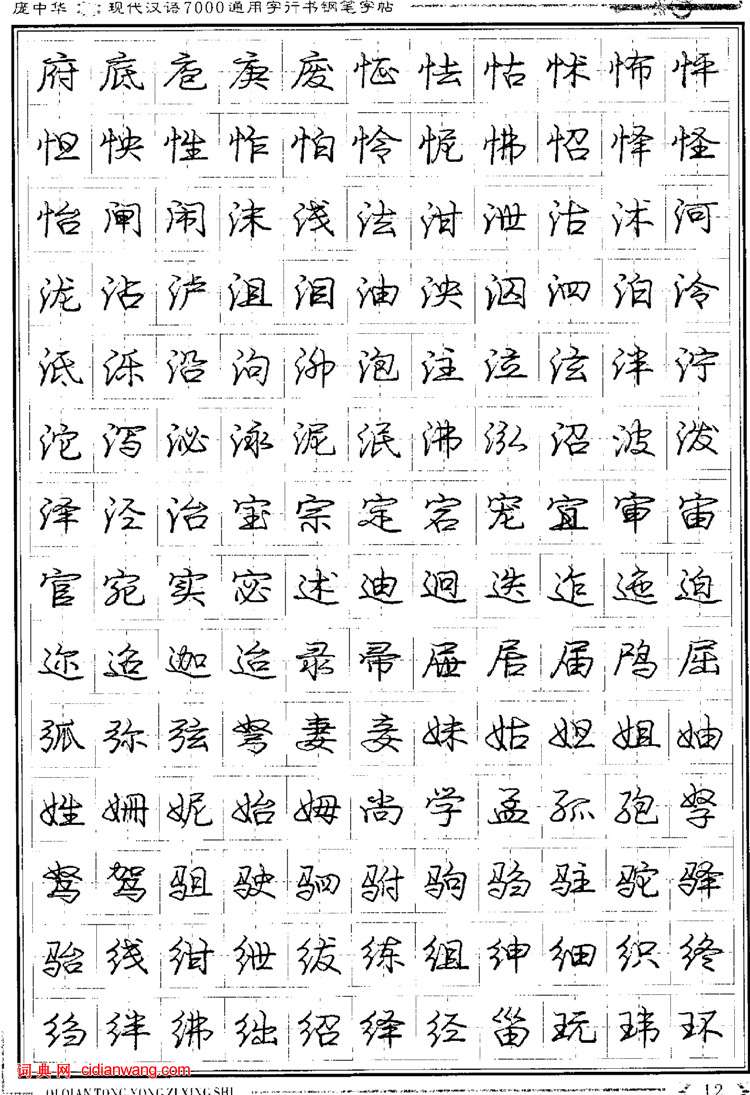 庞中华 现代汉语7000通用字行书钢笔字帖
府底庖庚废怔怯怙怵怖怦
怛怏性怍怕怜怩怫怊怿怪
怡闸闹沫浅法泔泄沽沭河
泷沾泸沮泪油泱泅泗泊泠
泜泺沿泃泖泡注泣泫泮泞
沱泻泌泳泥泯沸泓沼波泼
泽泾治宝宗定宕宠宜审宙
官宛实宓述迪迥迭迮迤迫
迩迢迦迨录帚届居届鸤屈
弧弥弦弩妻妾妹姑妲姐妯
姓姗妮始姆尚学孟孤孢孥
驽驾驵驶驷驸驹驺驻驼驿
骀线绀绁绂练组绅细织终
绉绊绋绌绍绎经甾玩玮环
词典网 cidianwang.com
12